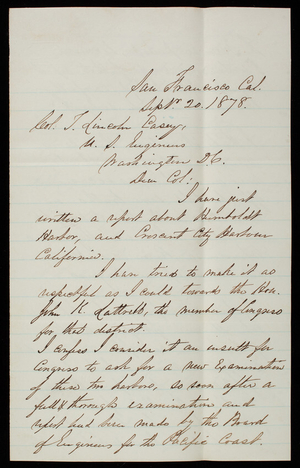 San Francisco Cal.
Sept. 20. 1878.
Col. T. Lincoln Casey,
U. S. Engineers
Washington D.C.
Dear Col:
I have just
written a report about Humboldt
Harbor, and Crescent City Harbour
California.
I have tried to make it as
respectful as I could towards the Hon.
John K. Luttrell, the member of Congress
for this district.
I confess I consider it an insult for
Congress to ask for a new Examination
of these two harbors, so soon after a
full & thorough examination and
report had been made by the Board
of Engineers for the Pacific Coast.